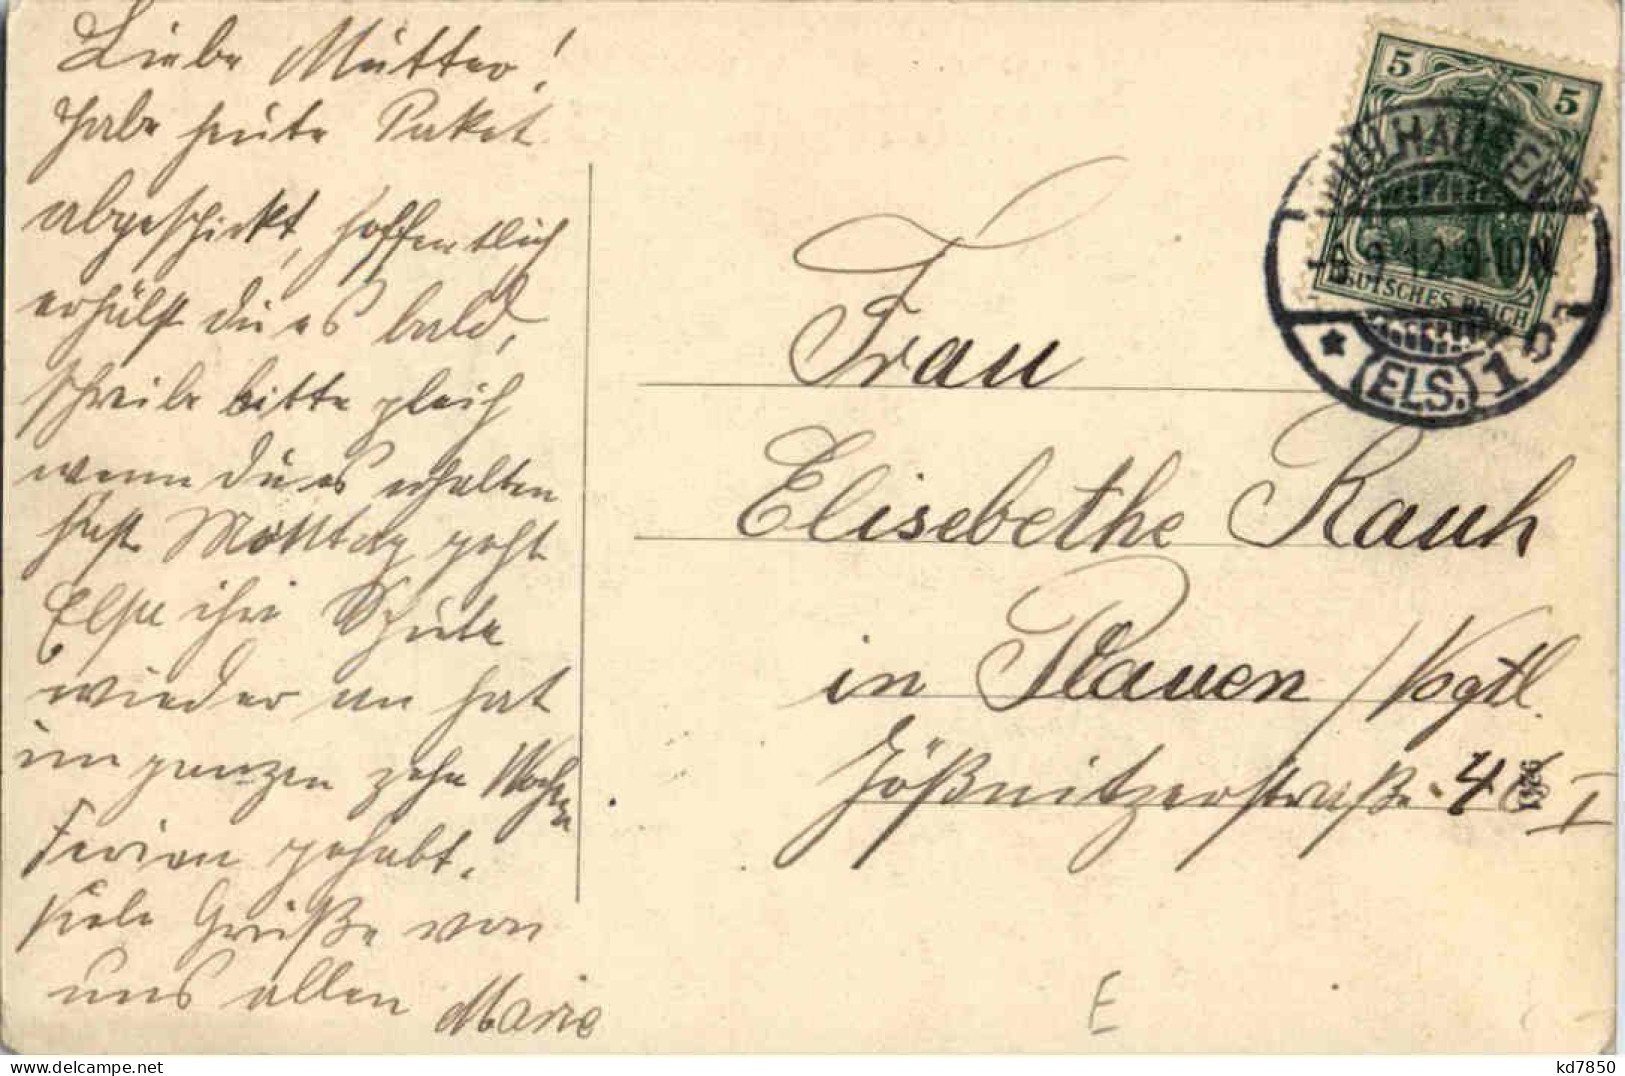 Liebe Mutter!
habe heute Paket
abgeschickt, hoffentlich
erhälst du es bald,
schreibe bitte gleich
wenn du es erhalten
hast Montag geht
Else ihre Schule
wieder an hat
im ganzen zehn Wochen
Ferien gehabt.
Viele Grüße von
uns allen Marie
5 5
MÜLHAUSEN
9.12.9-10N.
DEUTSCHES REICH
(ELS.) 1
Frau
Elisebethe Rauh
in Plauen / Vogtl.
Jößnitzerstraße. 4 I
E
kd7850